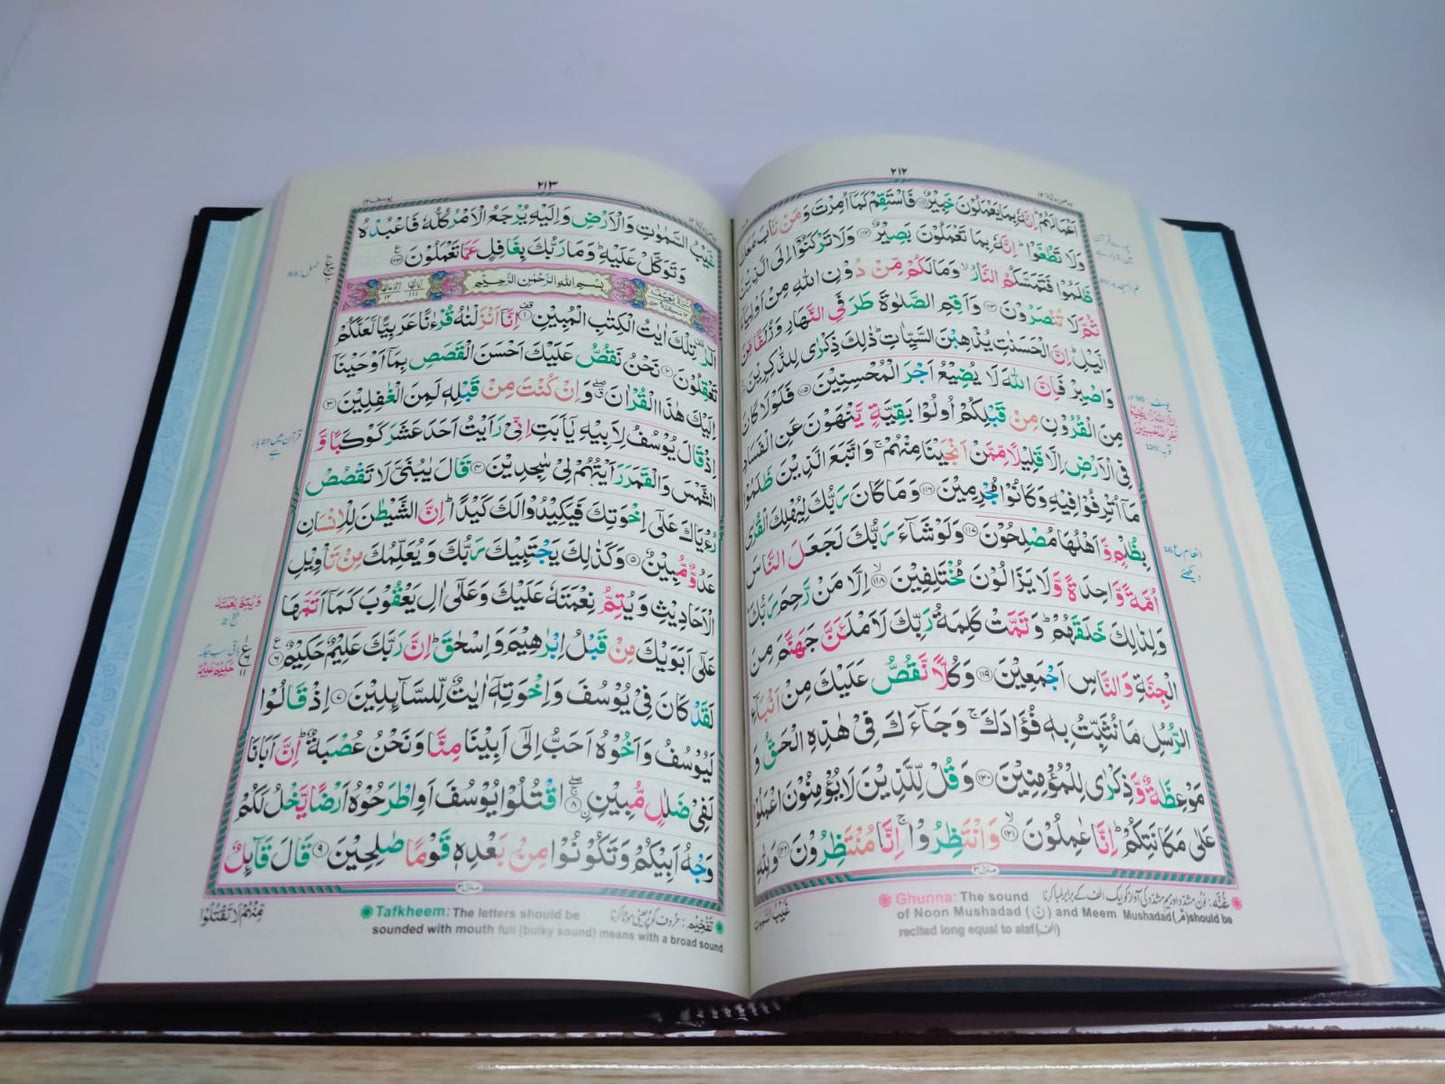 ۲۱۲
اَعْمَالَهُمْ اِنَّهٗ بِمَا يَعْمَلُوْنَ خَبِيْرٌ ۱۱۱ فَاسْتَقِمْ كَمَاۤ اُمِرْتَ وَمَنْ تَابَ مَعَكَ
وَلَا تَطْغَوْا ؕ اِنَّهٗ بِمَا تَعْمَلُوْنَ بَصِيْرٌ ۱۱۲ وَلَا تَرْكَنُوْۤا اِلَى الَّذِيْنَ
ظَلَمُوْا فَتَمَسَّكُمُ النَّارُ ۙ وَمَا لَكُمْ مِّنْ دُوْنِ اللّٰهِ مِنْ اَوْلِيَآءَ
ثُمَّ لَا تُنْصَرُوْنَ ۱۱۳ وَاَقِمِ الصَّلٰوةَ طَرَفَيِ النَّهَارِ وَزُلَفًا مِّنَ
الَّيْلِ ؕ اِنَّ الْحَسَنٰتِ يُذْهِبْنَ السَّيِّاٰتِ ؕ ذٰلِكَ ذِكْرٰى لِلذّٰكِرِيْنَ
وَاصْبِرْ فَاِنَّ اللّٰهَ لَا يُضِيْعُ اَجْرَ الْمُحْسِنِيْنَ ۱۱۵ فَلَوْلَا كَانَ
مِنَ الْقُرُوْنِ مِنْ قَبْلِكُمْ اُولُوْا بَقِيَّةٍ يَّنْهَوْنَ عَنِ الْفَسَادِ
فِى الْاَرْضِ اِلَّا قَلِيْلًا مِّمَّنْ اَنْجَيْنَا مِنْهُمْ ۚ وَاتَّبَعَ الَّذِيْنَ ظَلَمُوْا
مَاۤ اُتْرِفُوْا فِيْهِ وَكَانُوْا مُجْرِمِيْنَ ۱۱۶ وَمَا كَانَ رَبُّكَ لِيُهْلِكَ الْقُرٰى
بِظُلْمٍ وَّاَهْلُهَا مُصْلِحُوْنَ ۱۱۷ وَلَوْ شَآءَ رَبُّكَ لَجَعَلَ النَّاسَ
اُمَّةً وَّاحِدَةً وَّلَا يَزَالُوْنَ مُخْتَلِفِيْنَ ۱۱۸ ۙ اِلَّا مَنْ رَّحِمَ رَبُّكَ
وَلِذٰلِكَ خَلَقَهُمْ ؕ وَتَمَّتْ كَلِمَةُ رَبِّكَ لَاَمْلَـَٔنَّ جَهَنَّمَ مِنَ
الْجِنَّةِ وَالنَّاسِ اَجْمَعِيْنَ ۱۱۹ وَكُلًّا نَّقُصُّ عَلَيْكَ مِنْ اَنْۢبَآءِ
الرُّسُلِ مَا نُثَبِّتُ بِهٖ فُؤَادَكَ ۚ وَجَآءَكَ فِىْ هٰذِهِ الْحَقُّ وَ
مَوْعِظَةٌ وَّذِكْرٰى لِلْمُؤْمِنِيْنَ ۱۲۰ وَقُلْ لِّلَّذِيْنَ لَا يُؤْمِنُوْنَ اعْمَلُوْا
عَلٰى مَكَانَتِكُمْ ؕ اِنَّا عٰمِلُوْنَ ۱۲۱ ۙ وَانْتَظِرُوْا ۚ اِنَّا مُنْتَظِرُوْنَ ۱۲۲ وَلِلّٰهِ
منزل ۳
Ghunna: The sound of Noon Mushadad (نّ) and Meem Mushadad (مّ) should be recited long equal to alaf (الف)
غُنَّه: نون مشدد اور میم مشدد کی آواز کو ایک الف کے برابر لمبا کرنا
غَيْبُ السَّمٰوٰتِ
۲۱۳
غَيْبُ السَّمٰوٰتِ وَالْاَرْضِ وَاِلَيْهِ يُرْجَعُ الْاَمْرُ كُلُّهٗ فَاعْبُدْهُ
وَتَوَكَّلْ عَلَيْهِ ؕ وَمَا رَبُّكَ بِغَافِلٍ عَمَّا تَعْمَلُوْنَ ۱۲۳
بِسْمِ اللّٰهِ الرَّحْمٰنِ الرَّحِيْمِ
الٓرٰ ۫ تِلْكَ اٰيٰتُ الْكِتٰبِ الْمُبِيْنِ ۱ اِنَّاۤ اَنْزَلْنٰهُ قُرْءٰنًا عَرَبِيًّا لَّعَلَّكُمْ
تَعْقِلُوْنَ ۲ نَحْنُ نَقُصُّ عَلَيْكَ اَحْسَنَ الْقَصَصِ بِمَاۤ اَوْحَيْنَاۤ
اِلَيْكَ هٰذَا الْقُرْاٰنَ ۖ وَاِنْ كُنْتَ مِنْ قَبْلِهٖ لَمِنَ الْغٰفِلِيْنَ ۳
اِذْ قَالَ يُوْسُفُ لِاَبِيْهِ يٰۤاَبَتِ اِنِّىْ رَاَيْتُ اَحَدَ عَشَرَ كَوْكَبًا وَّ
الشَّمْسَ وَالْقَمَرَ رَاَيْتُهُمْ لِىْ سٰجِدِيْنَ ۴ قَالَ يٰبُنَىَّ لَا تَقْصُصْ
رُءْيَاكَ عَلٰٓى اِخْوَتِكَ فَيَكِيْدُوْا لَكَ كَيْدًا ؕ اِنَّ الشَّيْطٰنَ لِلْاِنْسَانِ
عَدُوٌّ مُّبِيْنٌ ۵ وَكَذٰلِكَ يَجْتَبِيْكَ رَبُّكَ وَيُعَلِّمُكَ مِنْ تَاْوِيْلِ
الْاَحَادِيْثِ وَيُتِمُّ نِعْمَتَهٗ عَلَيْكَ وَعَلٰٓى اٰلِ يَعْقُوْبَ كَمَاۤ اَتَمَّهَا
عَلٰٓى اَبَوَيْكَ مِنْ قَبْلُ اِبْرٰهِيْمَ وَاِسْحٰقَ ؕ اِنَّ رَبَّكَ عَلِيْمٌ حَكِيْمٌ ۶
لَقَدْ كَانَ فِىْ يُوْسُفَ وَاِخْوَتِهٖۤ اٰيٰتٌ لِّلسَّآئِلِيْنَ ۷ اِذْ قَالُوْا
لَيُوْسُفُ وَاَخُوْهُ اَحَبُّ اِلٰٓى اَبِيْنَا مِنَّا وَنَحْنُ عُصْبَةٌ ؕ اِنَّ اَبَانَا
لَفِىْ ضَلٰلٍ مُّبِيْنِ ۸ اۨقْتُلُوْا يُوْسُفَ اَوِاطْرَحُوْهُ اَرْضًا يَّخْلُ لَكُمْ
وَجْهُ اَبِيْكُمْ وَتَكُوْنُوْا مِنْۢ بَعْدِهٖ قَوْمًا صٰلِحِيْنَ ۹ قَالَ قَآئِلٌ
منزل ۳
Tafkheem: The letters should be sounded with mouth full (bulky sound) means with a broad sound
تفخیم: حروف کو پر یعنی موٹا کرنا
مِّنْهُمْ لَا تَقْتُلُوْا